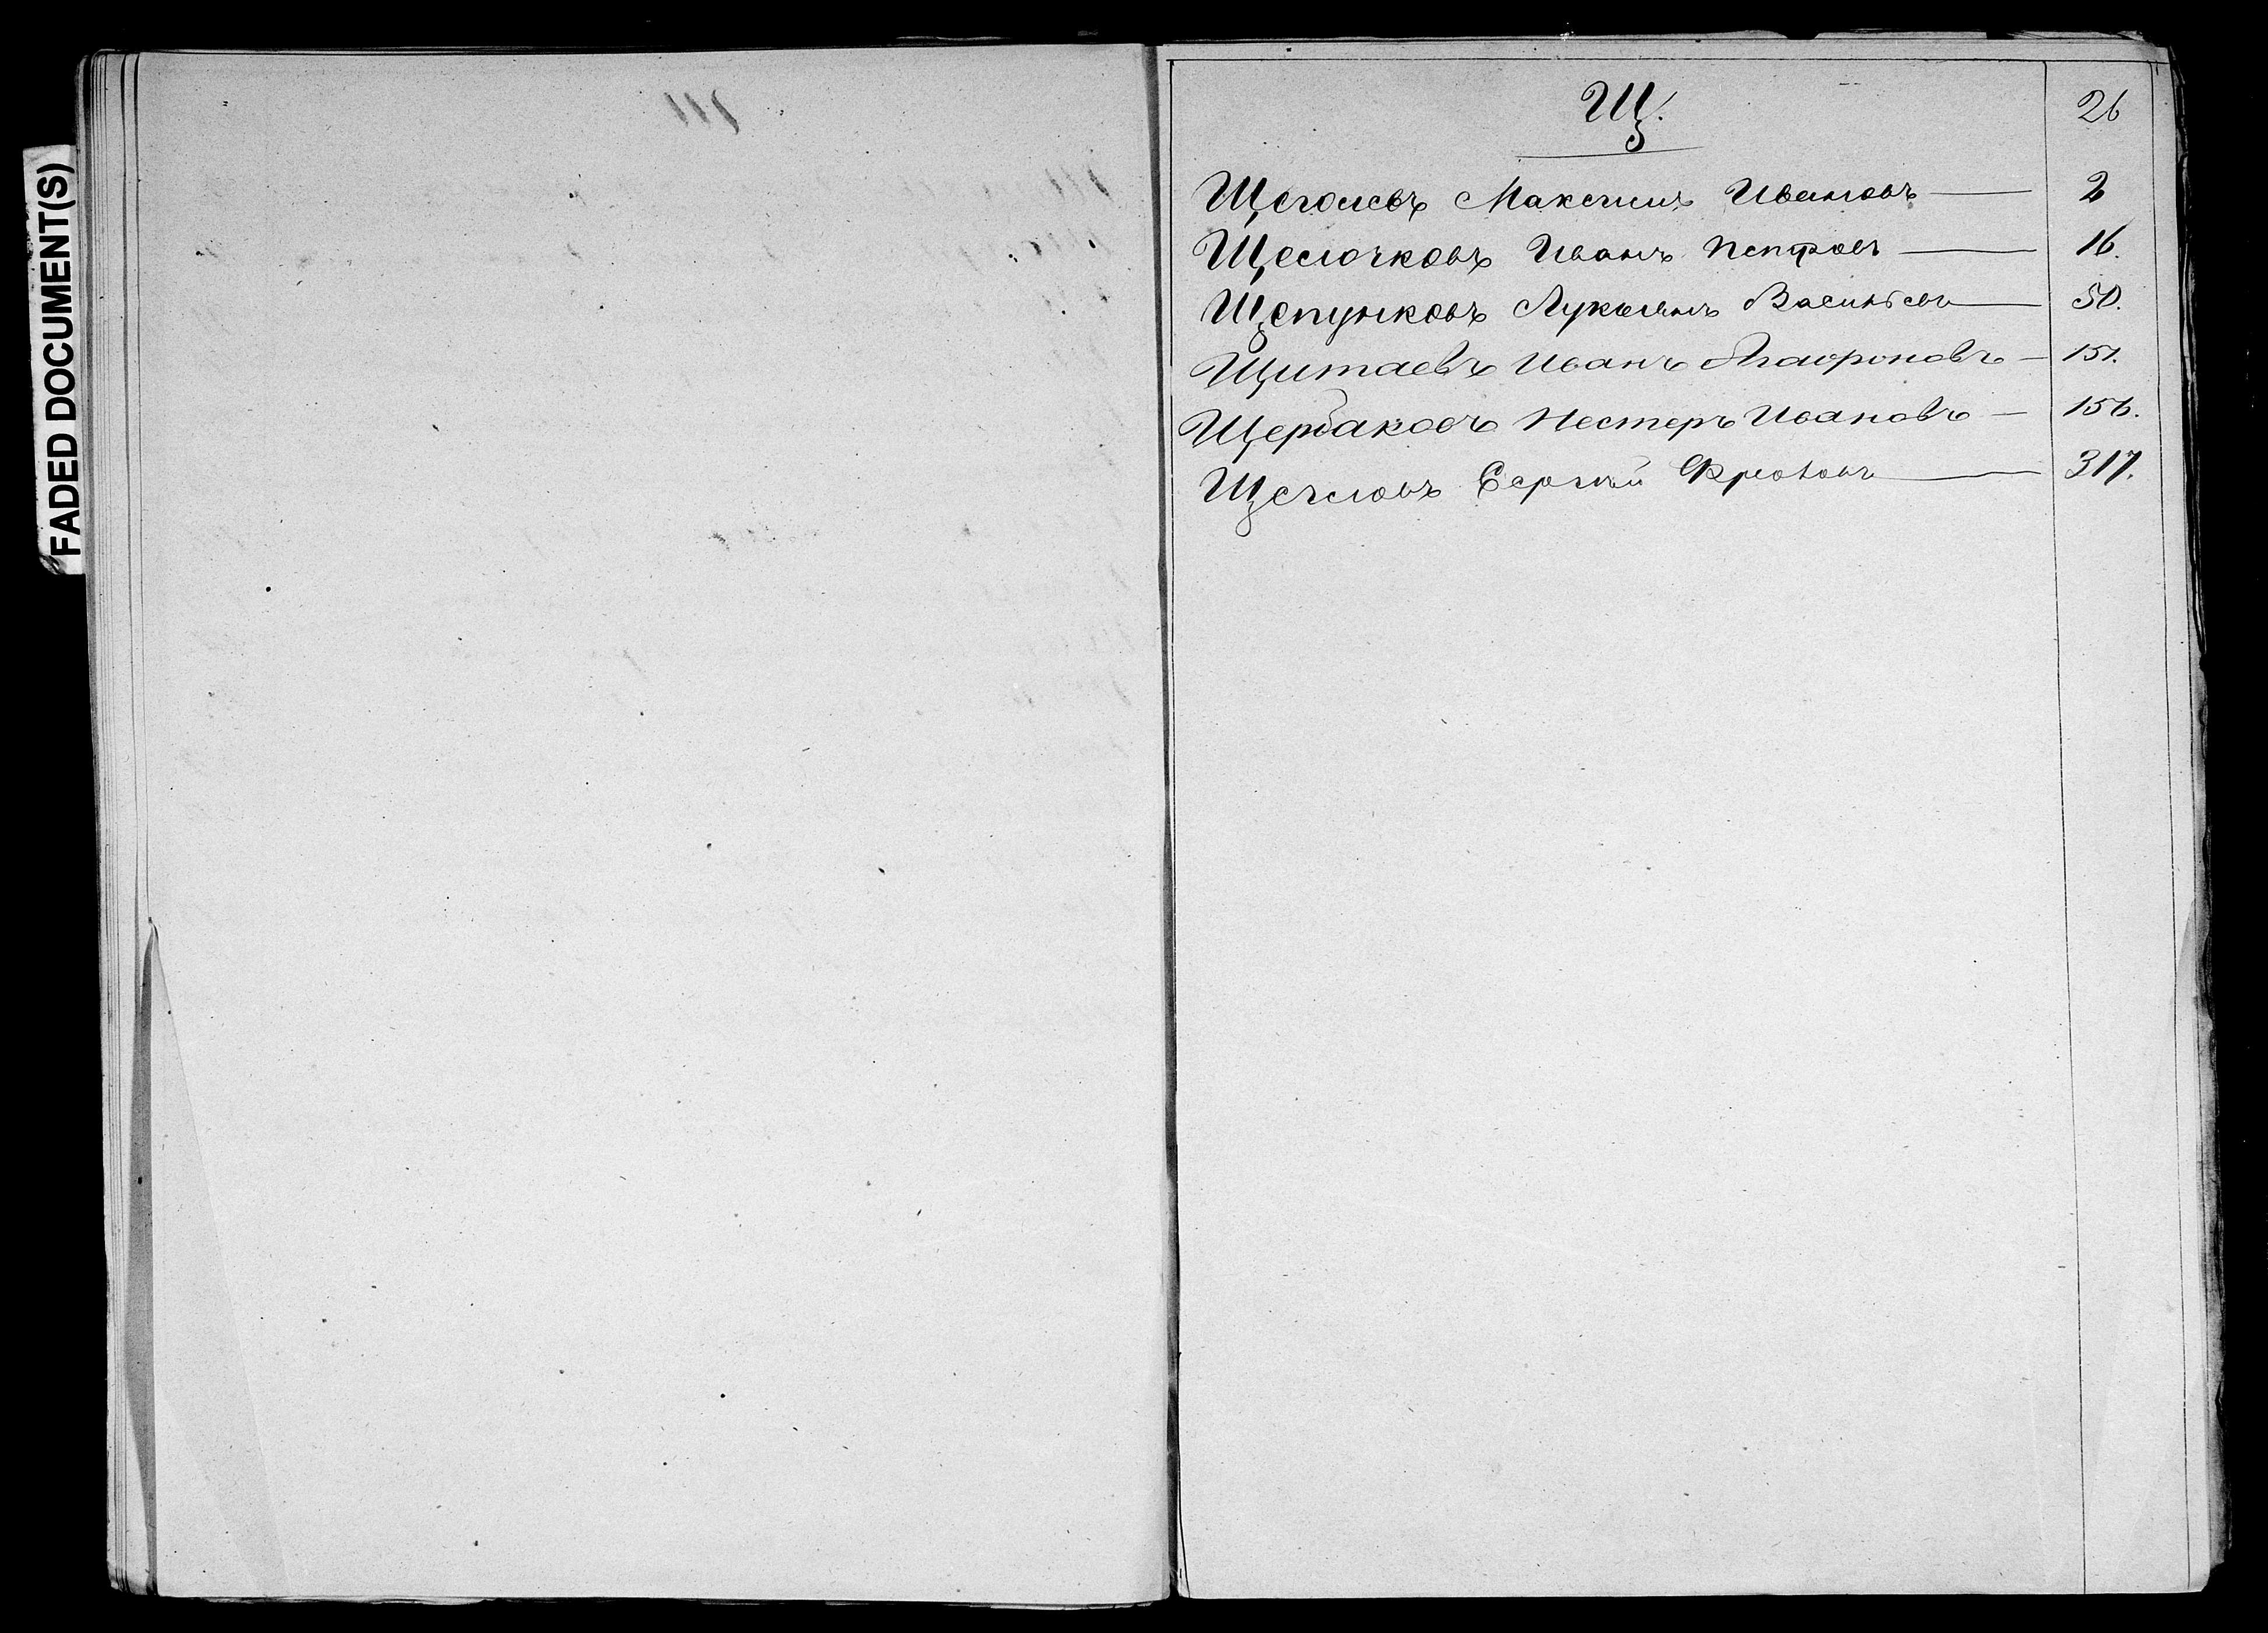 FADED DOCUMENT(S)
Щ.
26
Щеголевъ Максимъ Ивановъ — 2
Щелочковъ Иванъ Петровъ — 16.
Щепунковъ Лукьянъ Васильевъ — 50.
Щитаевъ Иванъ Агафоновъ — 151.
Щербаковъ Нестеръ Ивановъ — 156.
Сергѣй Фроловъ — 317.